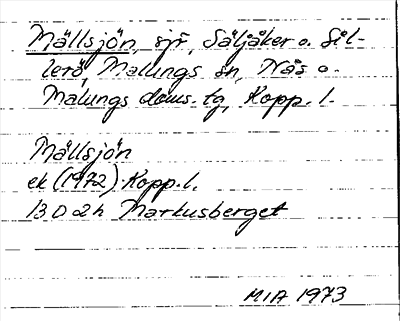 Mällsjön, sjö, Säljåker o. Sil-
lerö, Malungs sn, Nås o.
Malungs doms. tg, Kopp. l.
Mällsjön
ek (1972) Kopp. l.
13 D 2 h Markusberget
MIA 1973